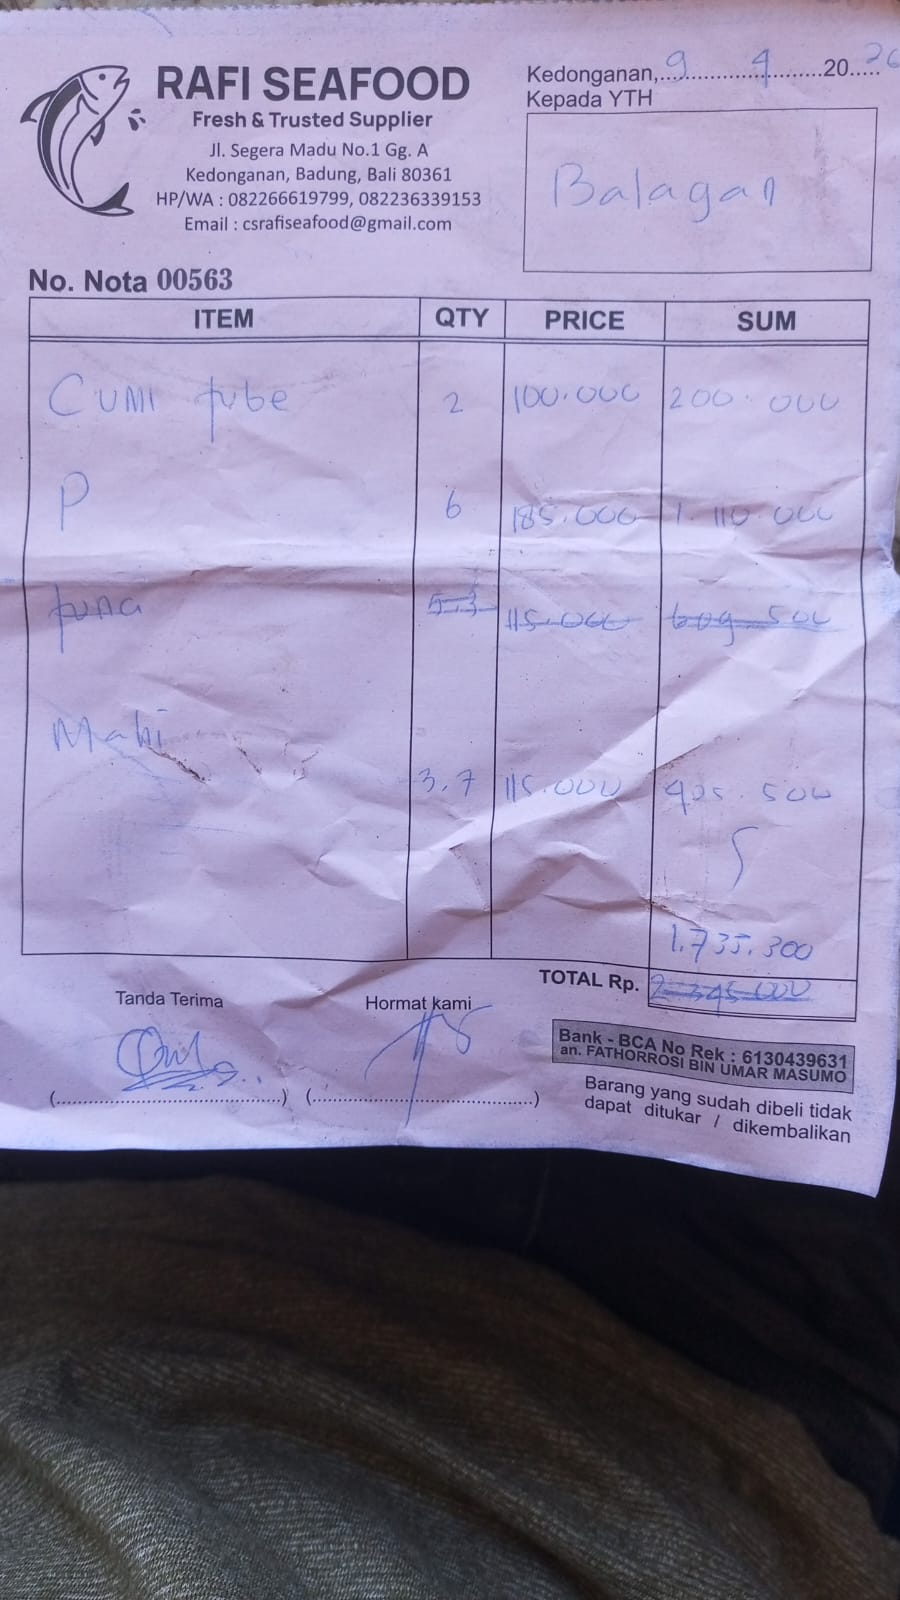 RAFI SEAFOOD
Fresh & Trusted Supplier
Jl. Segera Madu No.1 Gg. A
Kedonganan, Badung, Bali 80361
HP/WA : 082266619799, 082236339153
Email : csrafiseafood@gmail.com
Kedonganan, 9 4 20 26
Kepada YTH
Balagan
No. Nota 00563
ITEM QTY PRICE SUM
Cumi tube 2 100.000 200.000
P 6 185.000 1.110.000
tuna 5.3 115.000 609.500
Mahi
3,7 115.000 425.500
1.735.500
TOTAL Rp. 2.345.000
Tanda Terima
Hormat kami
(........................................) (........................................)
Bank - BCA No Rek : 6130439631
an. FATHORROSI BIN UMAR MASUMO
Barang yang sudah dibeli tidak
dapat ditukar / dikembalikan